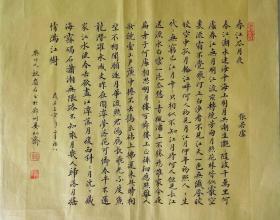 春江花月夜 張若虛
春江潮水連海平海上明月共潮生灩灩隨波千万里何
處春江無月明江流宛轉繞芳甸月照花林皆似霰空
裏流霜不覺飛汀上白沙看不見江天一色無纖塵皎
皎空中孤月輪江畔何人初見月江月何年初照人人生代
代無窮已江月年年只相似不知江月待何人但見長江
送流水白雲一片去悠悠青楓浦上不勝愁誰家今夜
扁舟子何處相思明月樓可憐樓上月徘徊應照離人
妝鏡臺玉戶簾中捲不去擣衣砧上拂還來此時相
望不相聞願逐月華流照君鴻雁長飛光不度魚
龍潛躍水成文昨夜閑潭夢落花可憐春半不還
家江水流春去欲盡江潭落月復西斜斜月沉沉藏
海霧碣石瀟湘無限路不知乘月幾人歸落月搖
情滿江樹